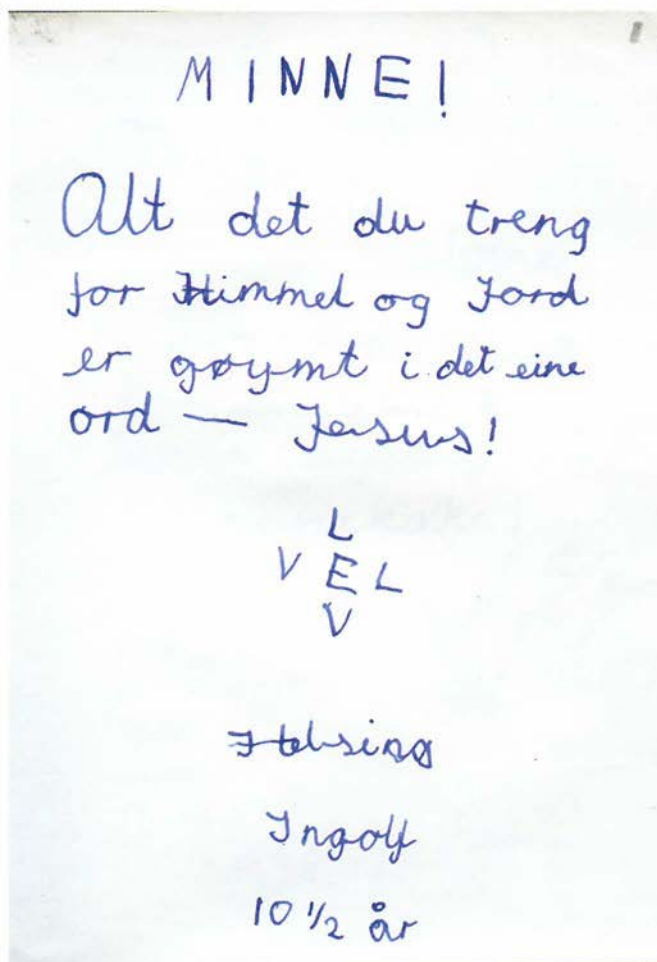 MINNE!
Alt det du treng
for Himmel og Jord
er gøymt i det eine
ord — Jesus!
L
V E L
V
Helsing
Ingolf
10 1/2 år